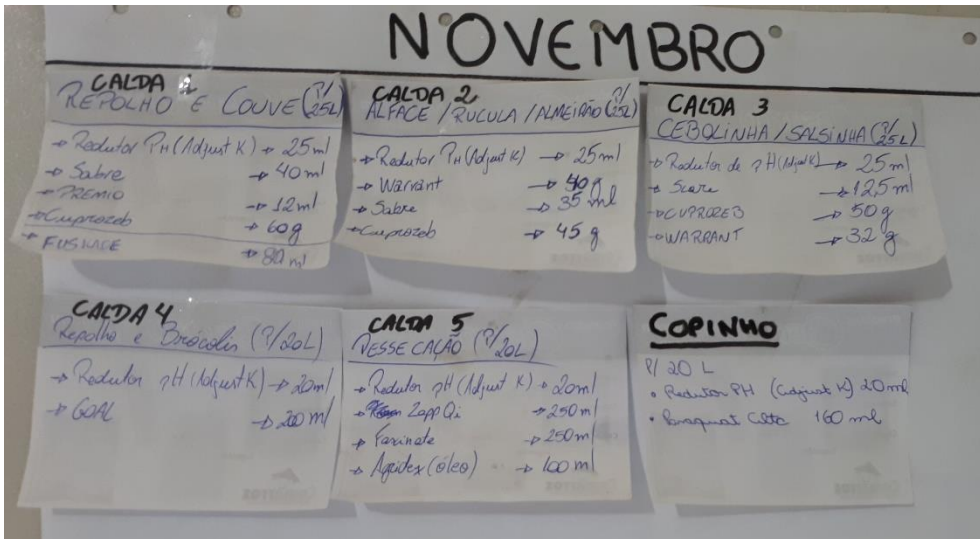 NOVEMBRO
CALDA 1
REPOLHO E COUVE (P/25L)
→ Redutor PH (Adjust K) → 25ml
→ Sabre → 40ml
→ PREMIO → 12ml
→ Cuprozeb → 60g
→ FUSILADE → 80ml
CALDA 2
ALFACE / RUCULA / ALMEIRÃO (P/25L)
→ Redutor PH (Adjust K) → 25ml
→ Warrant → 40g
→ Sabre → 35ml
→ Cuprozeb → 45g
CALDA 3
CEBOLINHA / SALSINHA (P/25L)
→ Redutor de pH (Adjust K) → 25ml
→ Score → 12,5ml
→ CUPROZEB → 50g
→ WARRANT → 32g
CALDA 4
Repolho e Brócolis (P/20L)
→ Redutor pH (Adjust K) → 20ml
→ GOAL → 200ml
CALDA 5
DESSECAÇÃO (P/20L)
→ Redutor pH (Adjust K) → 20ml
→ Zapp Qi → 250ml
→ Farinate → 250ml
→ Agridex (óleo) → 100ml
COPINHO
P/ 20 L
• Redutor PH (Adjust K) 20ml
• 160 ml